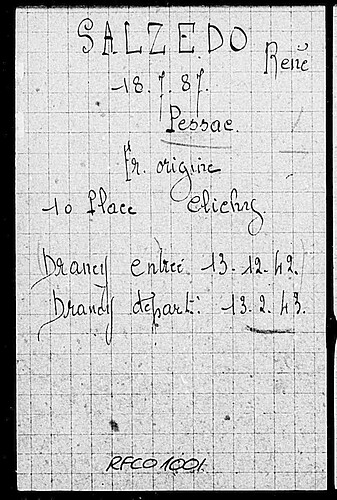 SALZEDO René
18.7.87.
Pessac.
Fr. origine
10 Place Clichy.
Drancy entrée 13.12.42.
Drancy départ: 13.2.43.
RFCO1001.